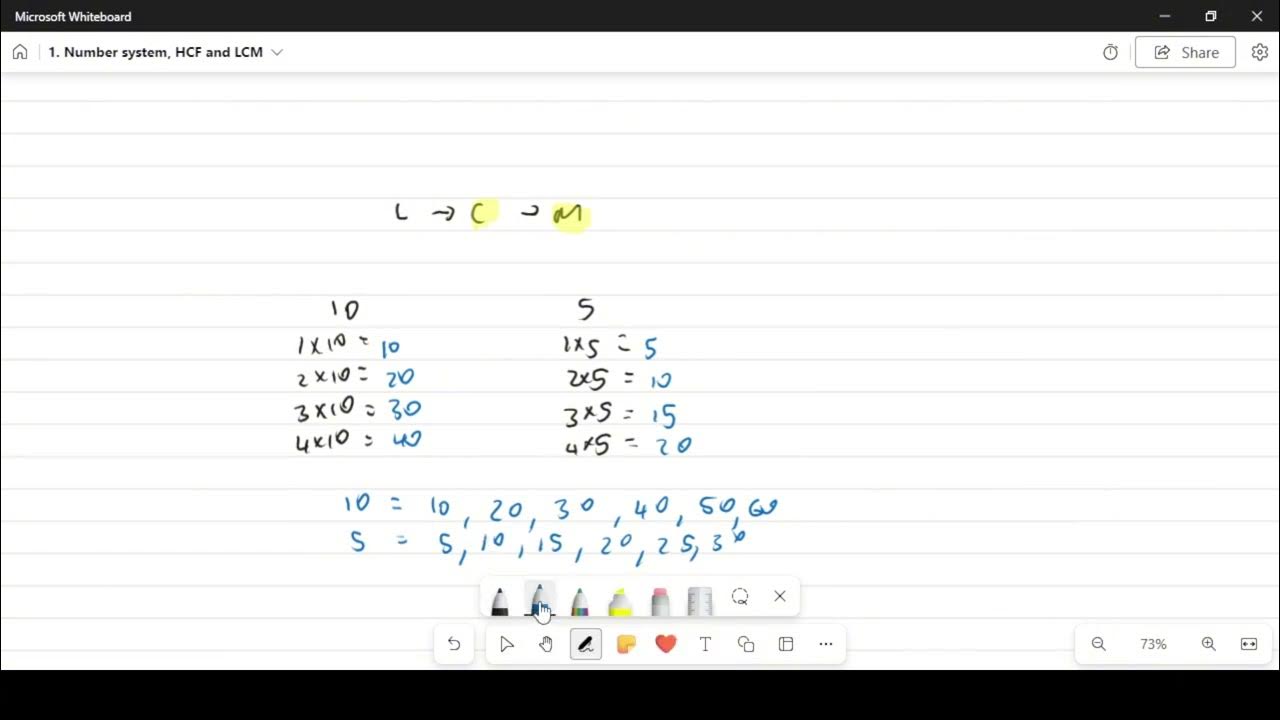 Microsoft Whiteboard
1. Number system, HCF and LCM
Share
L → C → M
10 5
1×10 = 10 1×5 = 5
2×10 = 20 2×5 = 10
3×10 = 30 3×5 = 15
4×10 = 40 4×5 = 20
10 = 10, 20, 30, 40, 50, 60
5 = 5, 10, 15, 20, 25, 30
73%